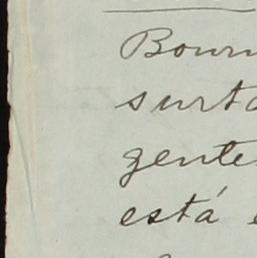 Bourn
surta
gente
está e